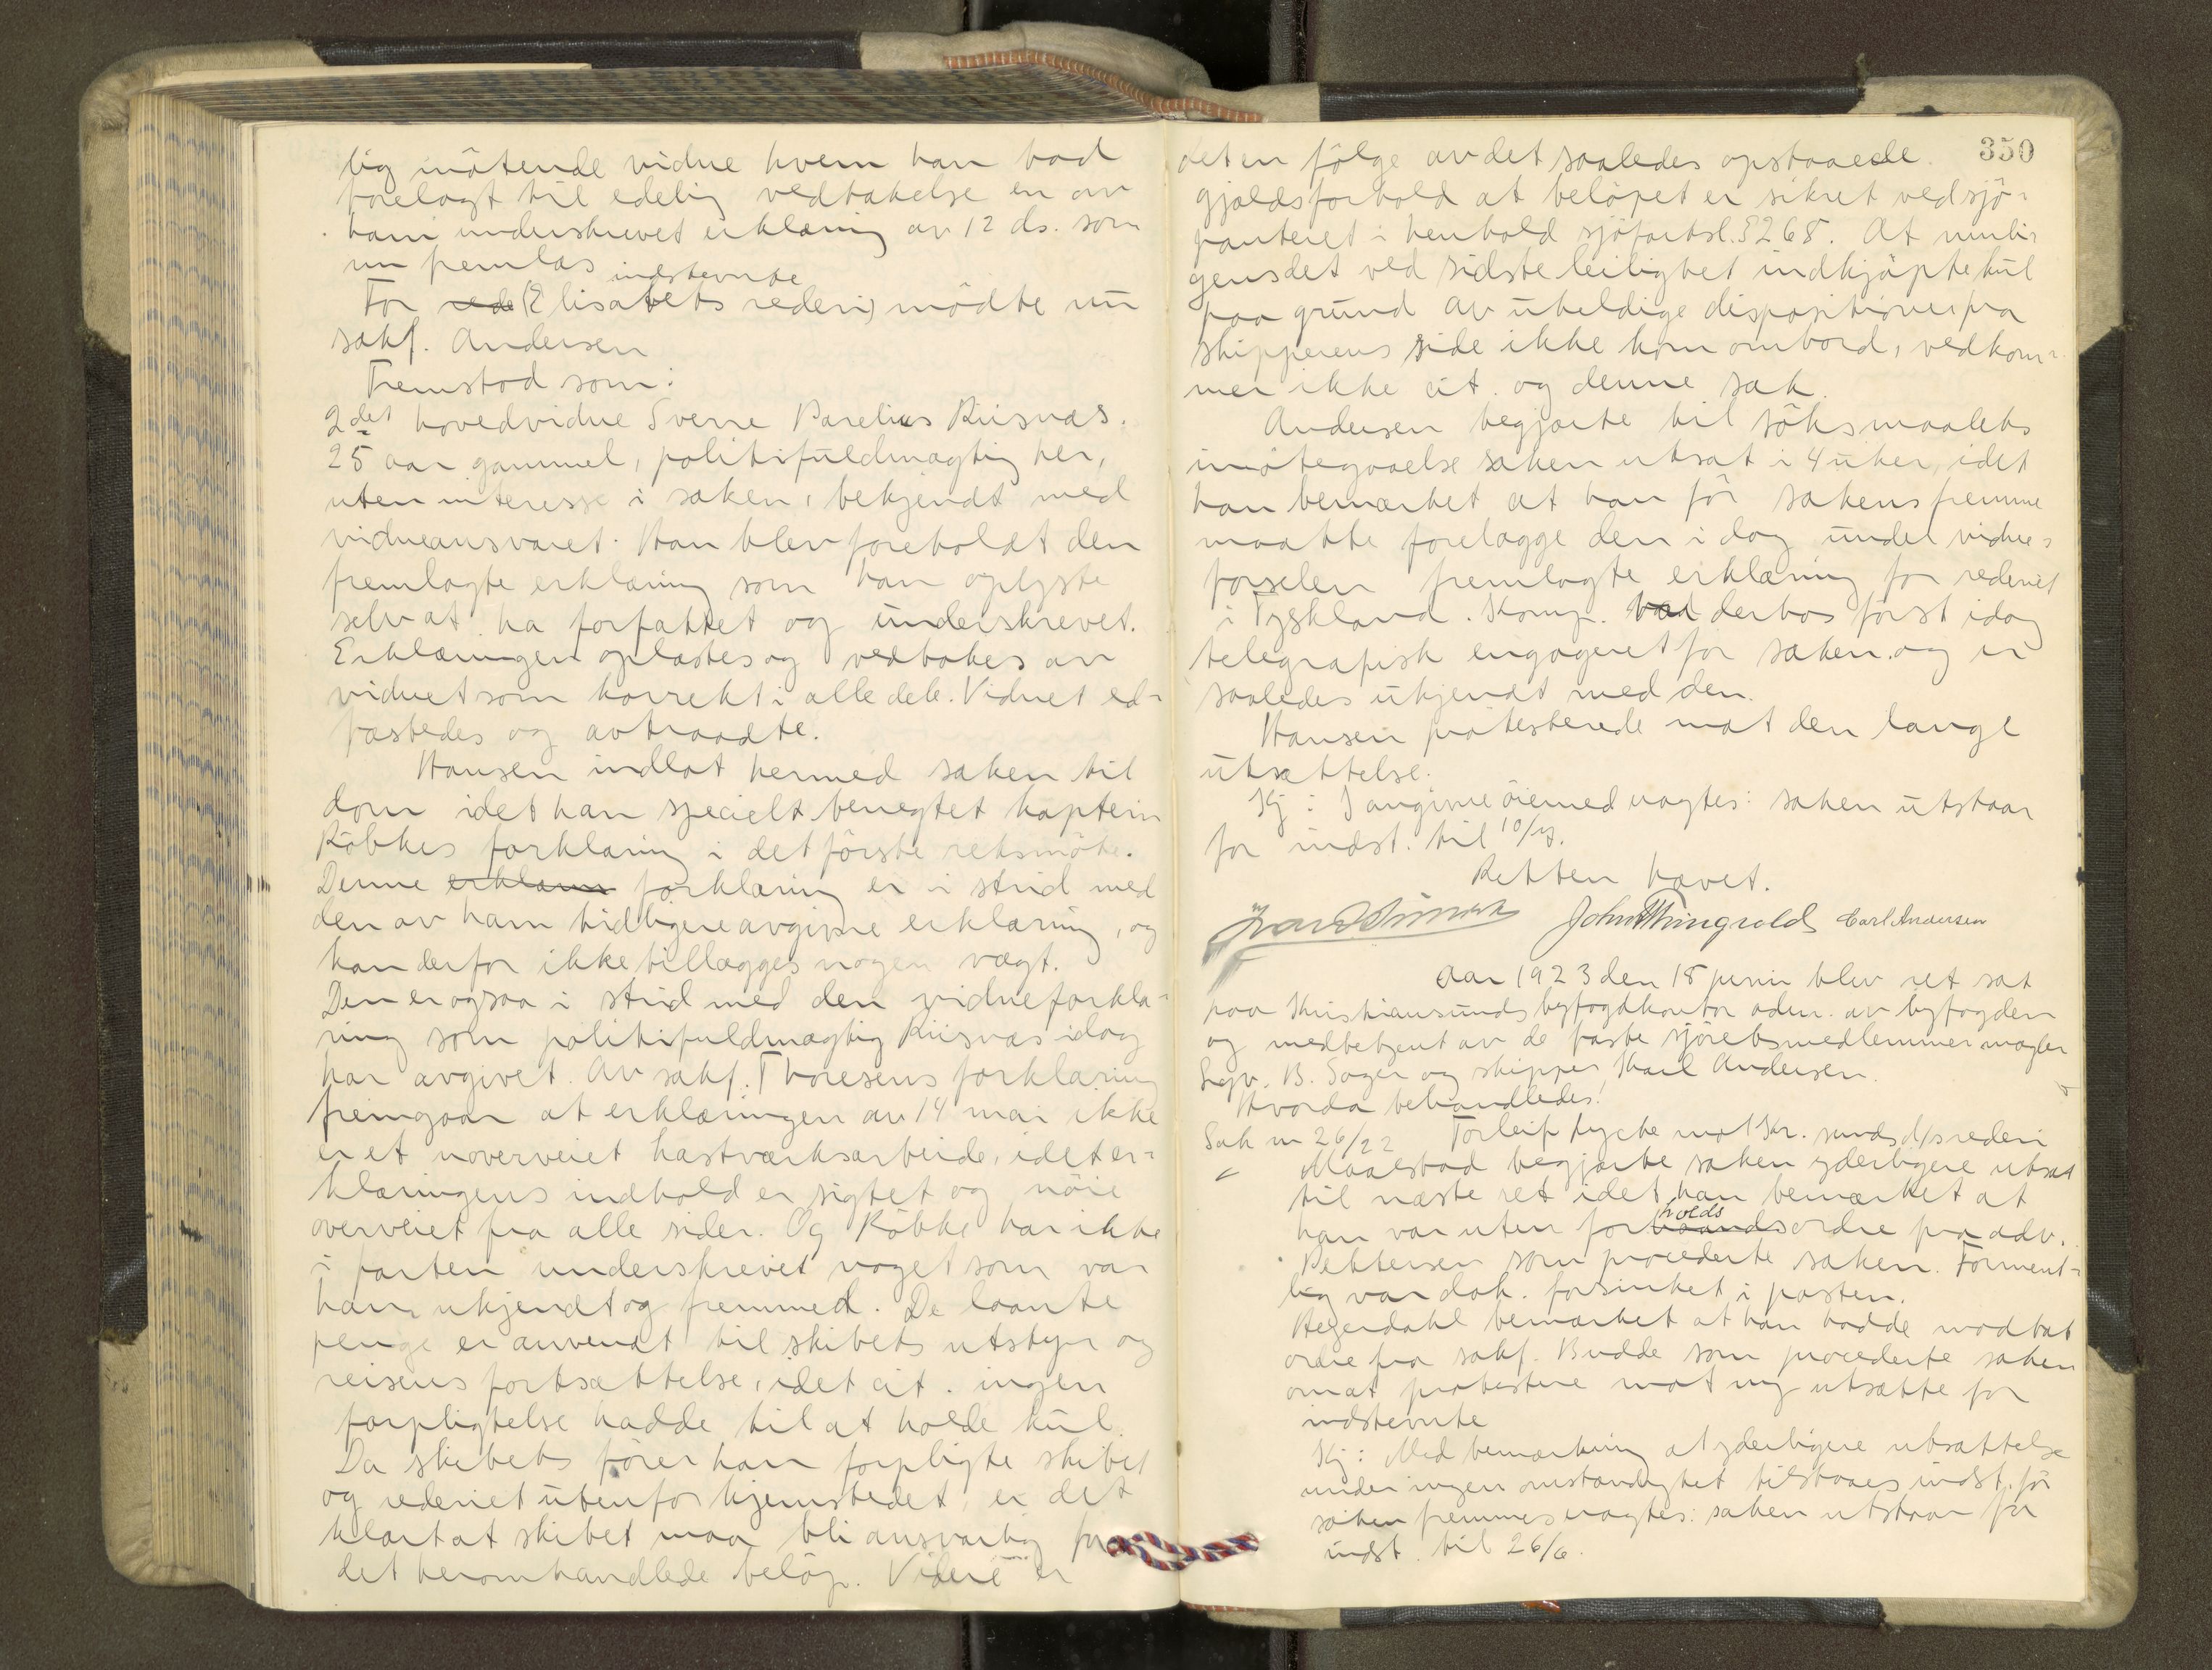 lig mötende vidne hvem han bad
forelagt til edelig vedtakelse en av
ham underskrevet erklæring av 12 ds. som
nu fremlas
indstevnte
For rede (Elisabets rederi) mödte nu
sakf. Andersen
Fremstod som:
2det hovedvidne Sverre Parelius Riisnæs.
25 aar gammel, politifuldmægtig her,
uten interesse i saken, bekjendt med
vidneansvaret. Han blev foreholdt den
fremlagte erklæring som han oplyste
selv at ha forfattet og underskrevet.
Erklæringen oplæstes og vedtokes av
vidnet som korrekt i alle dele. Vidnet ed-
fæstedes og avtraadte.
Hansen indlot hermed saken til
dom idet han specielt benegtet kaptein
Röbkes forklaring i det förste retsmöte.
Denne erklærin forklaring er i strid med
den av ham tidligere avgivne erklæring, og
kan derfor ikke tillægges nogen vægt.
Den er ogsaa i strid med den vidneforkla-
ring som politifuldmægtig Riisnæs idag
har avgivet. Av sakf. Thoresens forklaring
fremgaar at erklæringen av 14 mai ikke
er et uoverveiet hastverksarbeide, idet er-
klæringens indhold er sigtet og nöie
overveiet fra alle sider. Og Röbke har ikke
i farten underskrevet noget som var
ham ukjendt og fremmed. De laante
penge er anvendt til skibets utstyr og
reisens fortsættelse, idet cit. ingen
forpligtelse hadde til at holde kul.
Da skibets förer kan forpligte skibet
og rederiet utenfor hjemstedet, er det
klart at skibet maa bli ansvarlig for
det heromhandlede belöp. Videre er
350
det en fölge av det saaledes opstaaede
gjældsforhold at belöpet er sikret ved sjö-
panteret i henhold sjöfartsl. § 268. At muli-
gens det ved sidste leilighet indkjöpte kul
paa grund av uheldige dispositioner fra
skipperens side ikke kom ombord, vedkom-
mer ikke cit. og denne sak.
Andersen begjærte til söksmaalets
imötegaaelse saken utsat i 4 uker, idet
han bemærket at han för sakens fremme
maatte forelægge den i dag under vidne-
förselen fremlagte erklæring for rederiet
i Tyskland. Komp. var derhos först idag
telegrafisk engageret for saken og er
saaledes ukjendt med den.
Hansen protesterede mot den lange
utsættelse.
Kj: I angivne öiemed vagtes: saken utstaar
for indst. til 10/7.
Retten hævet.
John Thingvold Carl Andersen
Aar 1923 den 18 juni blev ret sat
paa Kristiansunds byfogdkontor adm. av byfogden
og medbetjent av de faste sjöretsmedlemmer mægler
Sigv. B. Sager og skipper Karl Andersen.
Hvorda behandledes:
Sak nr 26/22 Torleif Lycke mot Kr.sunds d/s rederi
Maalstad begjærte saken yderligere utsat
til næste ret idet han bemærket at
holds
han var uten forhaandsordre fra adv.
Pettersen som procederte saken. Forment-
lig var dok. forsinket i posten.
Hegerdahl bemærket at han hadde mottat
ordre fra sakf. Budde som procederte saken
om at protestere mot ny utsætte for
indstevnte
Kj: Med bemærkning at yderligere utsættelse
under ingen omstændighet tilstaaes indst. för
saken fremmes vagtes: saken utstaar for
indst. til 26/6.